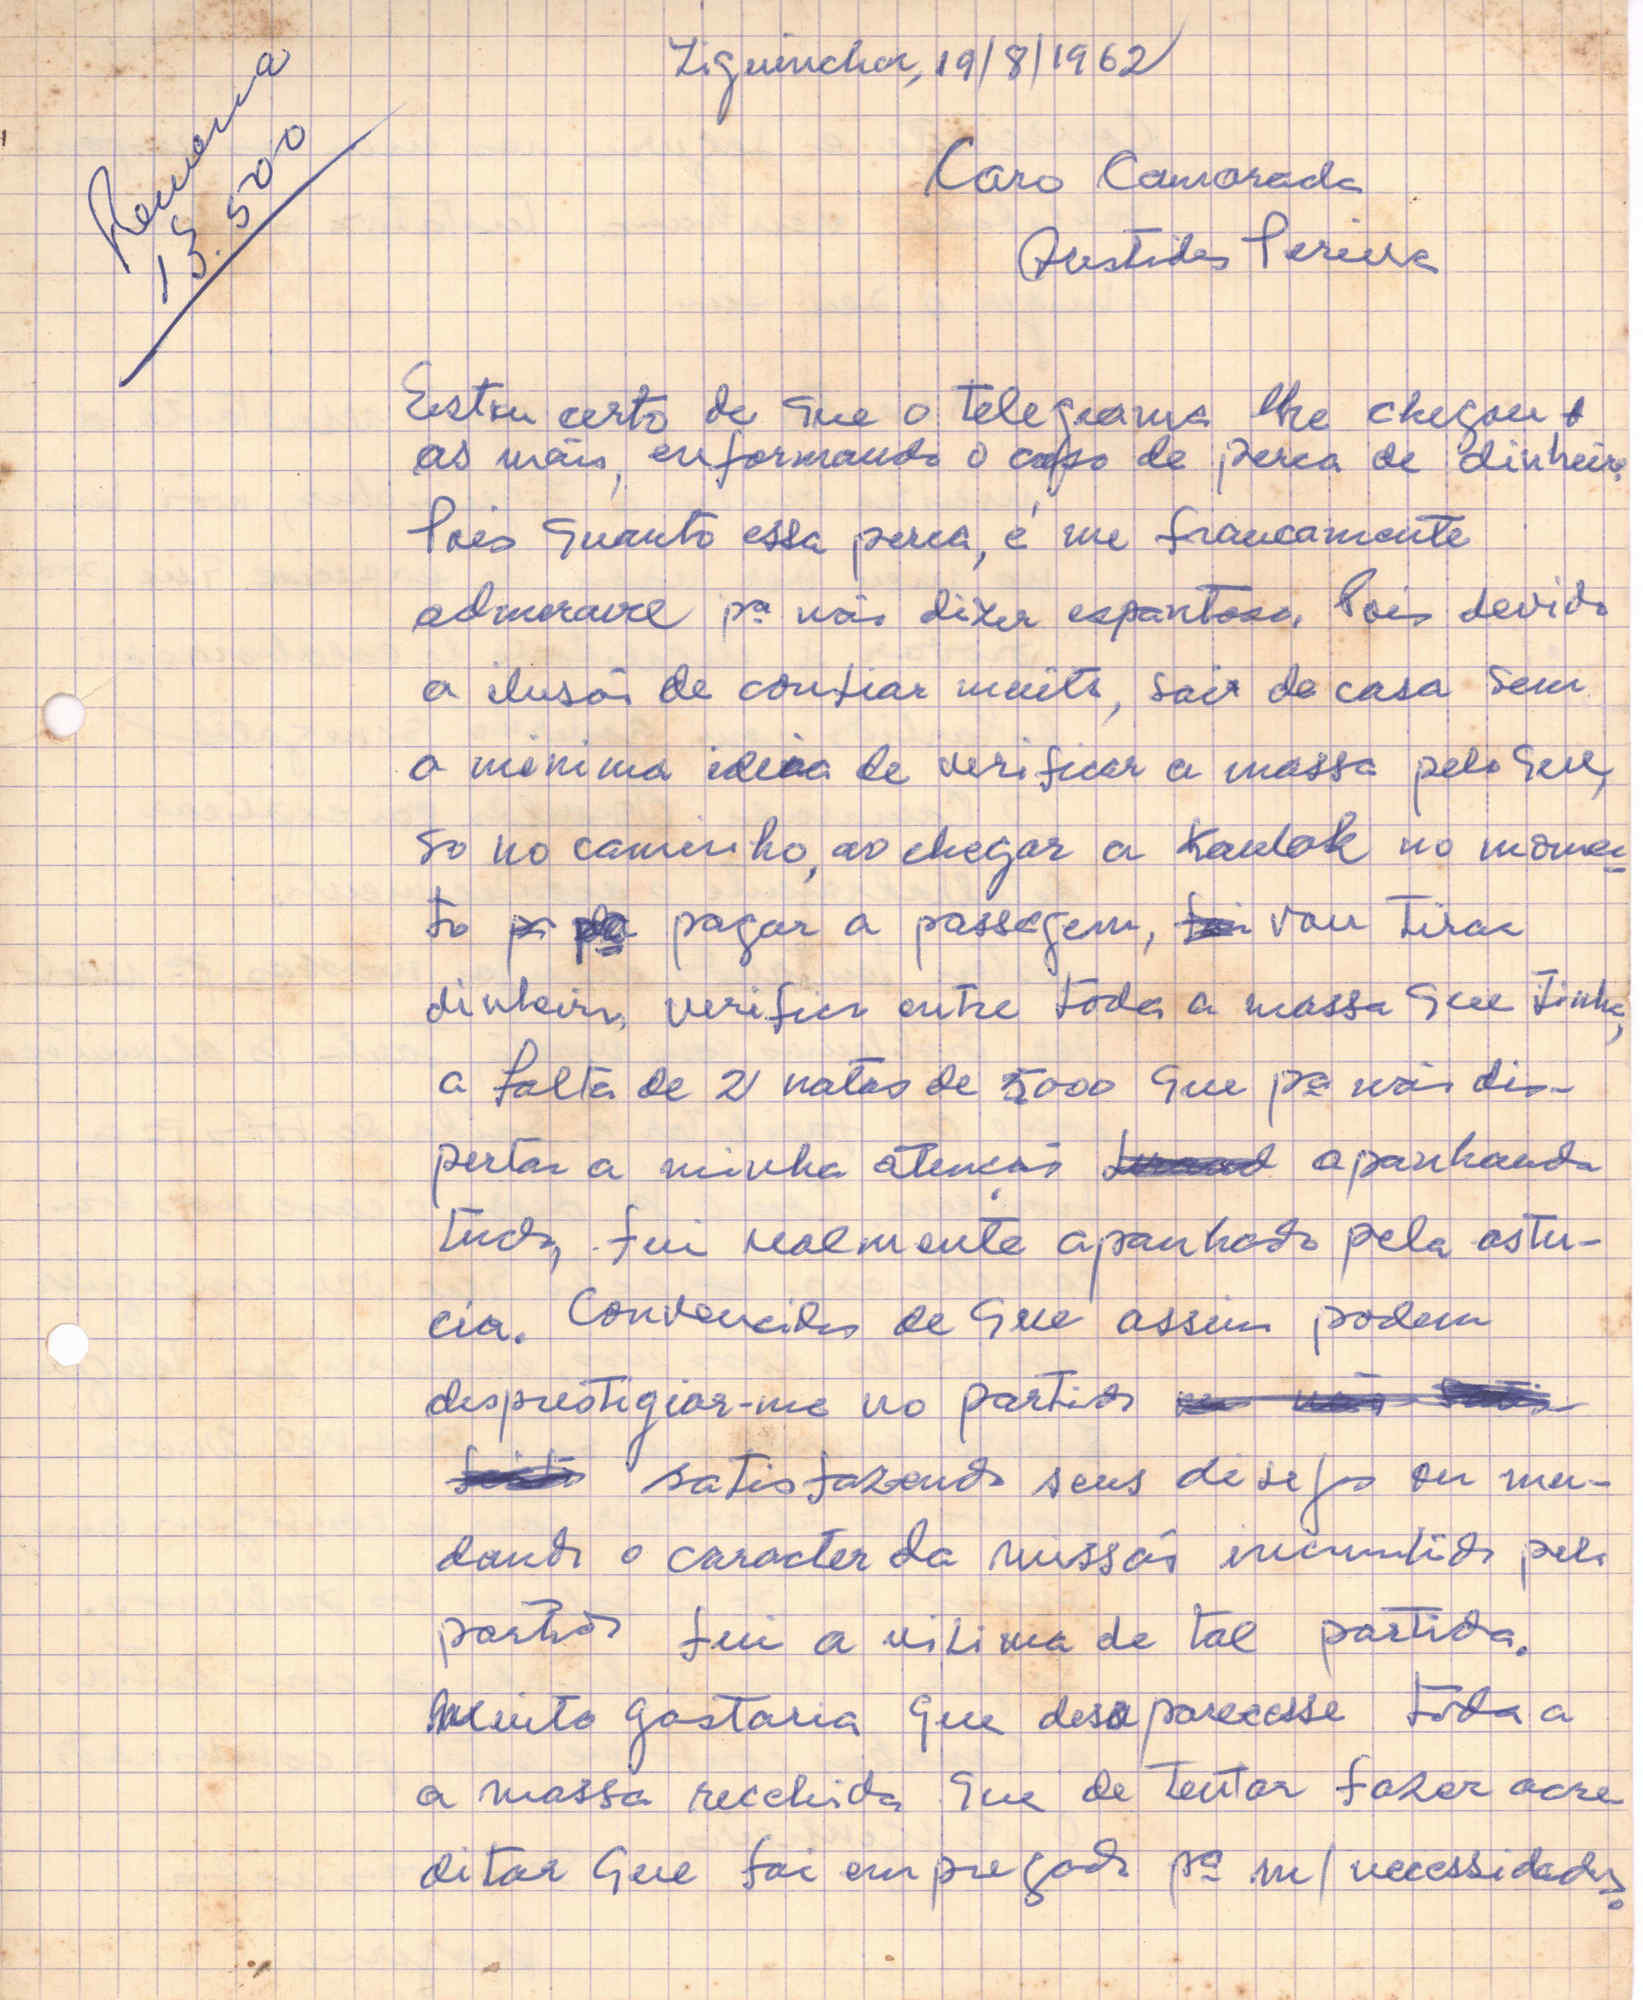 Remessa
13.500
Ziguinchor, 19/8/1962
Caro Camarada
Aristides Pereira
Estou certo de que o telegrama lhe chegou
as mãos, enformando o caso de perca de dinheiro.
Pois quanto essa perca, é me francamente
admeravel pª não dizer espantosa. Pois devido
a ilusão de confiar muito, sair de casa sem
a minima ideia de verificar a massa pelo que,
so no caminho, ao chegar a Kaolak no momen-
to pagar a passagem, vou tirar
dinheiro, verifico entre toda a massa que tinha,
a falta de 2 notas de 5000 que pª não dis-
pertar a minha atenção apanhando
tudo, fui realmente apanhado pela astu-
cia. Convencidos de que assim podem
desprestigiar-me no partido
satisfazendo seus desejos ou mu-
dando o caracter da missão incumbido pelo
partido fui a vitima de tal partida.
Muito gostaria que desaparecesse toda a
a massa recebida que de tentar fazer acre
ditar que foi empregado pª m/ necessidades.